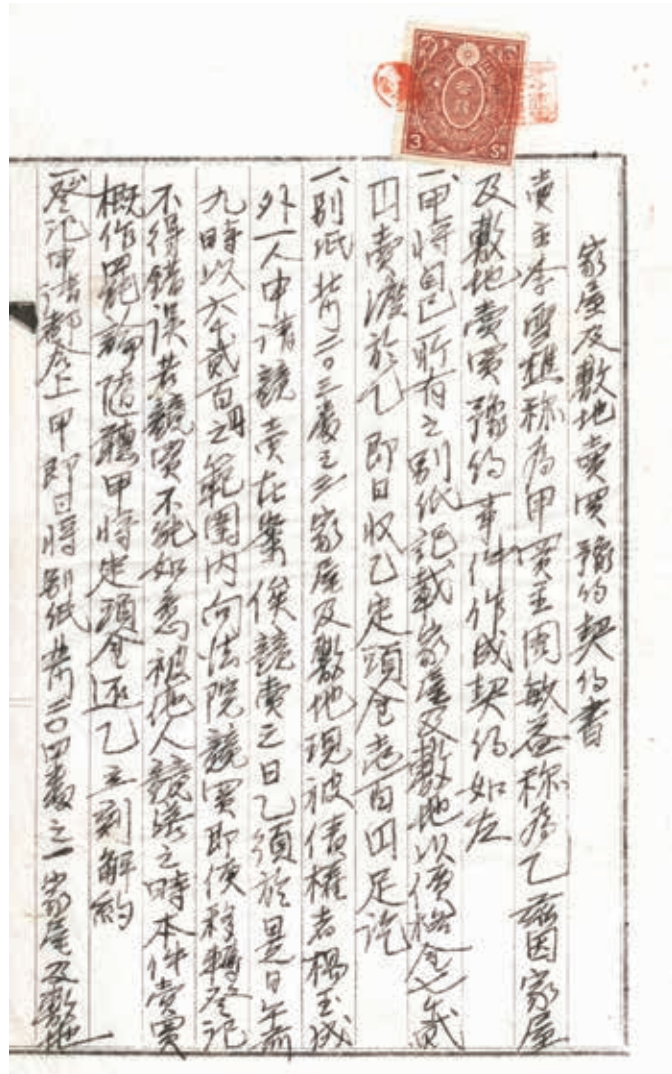 3 Sn
家屋及敷地賣買豫約契約書
賣主李雪樵称為甲買主周敏益称為乙茲因家屋
及敷地賣買豫約事件作成契約如左
一、甲將自己所有之別紙記載家屋及敷地以價格金七千貳
円賣渡於乙即日收乙定頭金壱百円足訖
一、別紙 二〇三番之三家屋及敷地現被債權者楊玉成
外一人申請競賣在案俟競賣之日乙須於是日午前
九時以六千貳百円之範圍内向法院競買即使移轉登記
不得錯誤若競買不能如意被他人競落之時本件賣買
概作罷論隨聽甲將定頭金还乙立刻解約
一、登記申請都合上甲即日將別紙 二〇四番之一家屋及敷地